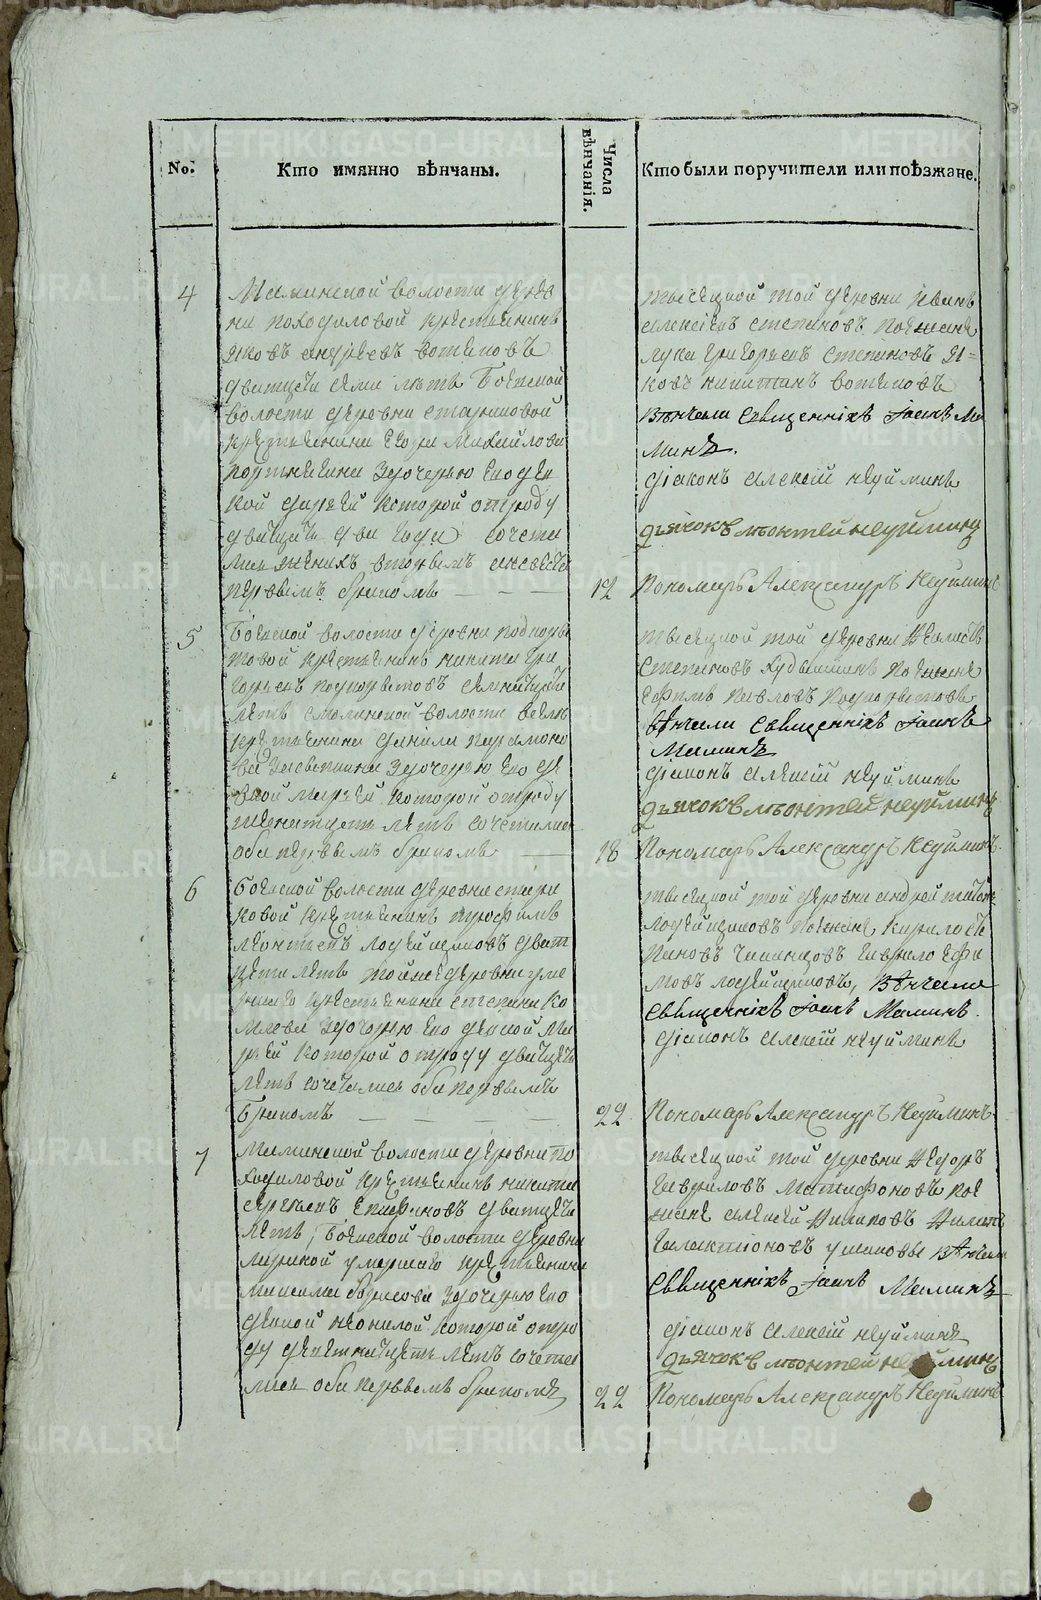 No:
Кто имянно вѣнчаны.
Числа вѣнчанія.
Кто были поручители или поѣзжане.
4
Маминской волости дерев
ни походиловой крестьянинъ
яковъ андреевъ вотяковъ
дватцети семи летъ Боевской
волости деревни стариковой
крестьянина Егора Михайлова
дочерью Его дев
кой дарьей которой отроду
дватцеть два года сочета
лись жених вторымъ а невеста
первымъ бракомъ
12
тысецкой той деревни Иванъ
алексеевъ степановъ поезжаня
лука григорьевъ степановъ я=
ковъ никитинъ вотяковъ
Вѣнчали Священникъ Іоанъ Ма
минъ.
діаконъ алексей неуйминъ
дьячокъ мѣонтей неуйминъ
Пономарь Александръ Неуйминъ
5
Боевской волости деревни подкоры
товой крестьянинъ никита гри
горьевъ подкорытовъ семнатцети
летъ смолинской волости
крестьянина данила парамоно
ва дочерью Его де
вкой марьей которой отроду
летъ сочетались
оба первымъ бракомъ
18
тысецкой той деревни
степановъ кудышкинъ поезжаня
Ефимъ павловъ подкорытовъ
Вѣнчали Священникъ Іоанъ
Маминъ
діаконъ алексей неуйминъ
дьячокъ мѣонтей неуйминъ
Пономарь Александръ Неуйминъ.
6
Боевской волости деревни стари
ковой крестьянинъ трофимъ
леонтьевъ лодейщиковъ дват
цети летъ той же деревни уме
ршаго крестьянина степана ко
млева дочерью Его девкой ма
рьей которой отроду дватцеть
летъ сочетались оба первымъ
бракомъ
22
тысецкой той деревни андрей
лодейщиковъ поезжаня кирило сте
пановъ гаврило Ефи
мовъ лодейщиковъ, Вѣнчали
Священникъ Іоанъ Маминъ.
діаконъ алексей неуйминъ
Пономарь Александръ Неуйминъ
7
Маминской волости деревни по
ходиловой крестьянинъ никита
сергеевъ Епифановъ дватцети
летъ, Боевской волости деревни
умершаго крестьянина
максима борисова дочерью Его
девкой неонилой которой отро
ду девятнатцеть летъ сочета
лись оба первымъ бракомъ
22
тысецкой той деревни Федоръ
гавриловъ Матифоновъ пое
зжане алексей Филиповъ Филатъ
галактіоновъ ушаковы Вѣнчали
Священникъ Іоанъ Маминъ
діаконъ алексей неуйминъ
дьячокъ мѣонтей неуйминъ
Пономарь Александръ Неуйминъ
METRIKI.GASO-URAL.RU